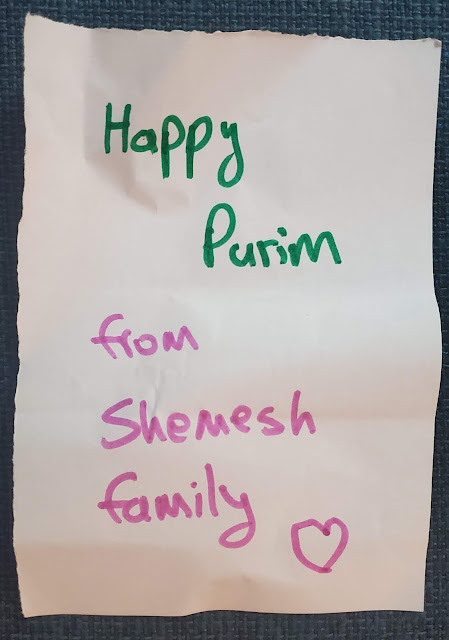 Happy
Purim
from
Shemesh
family